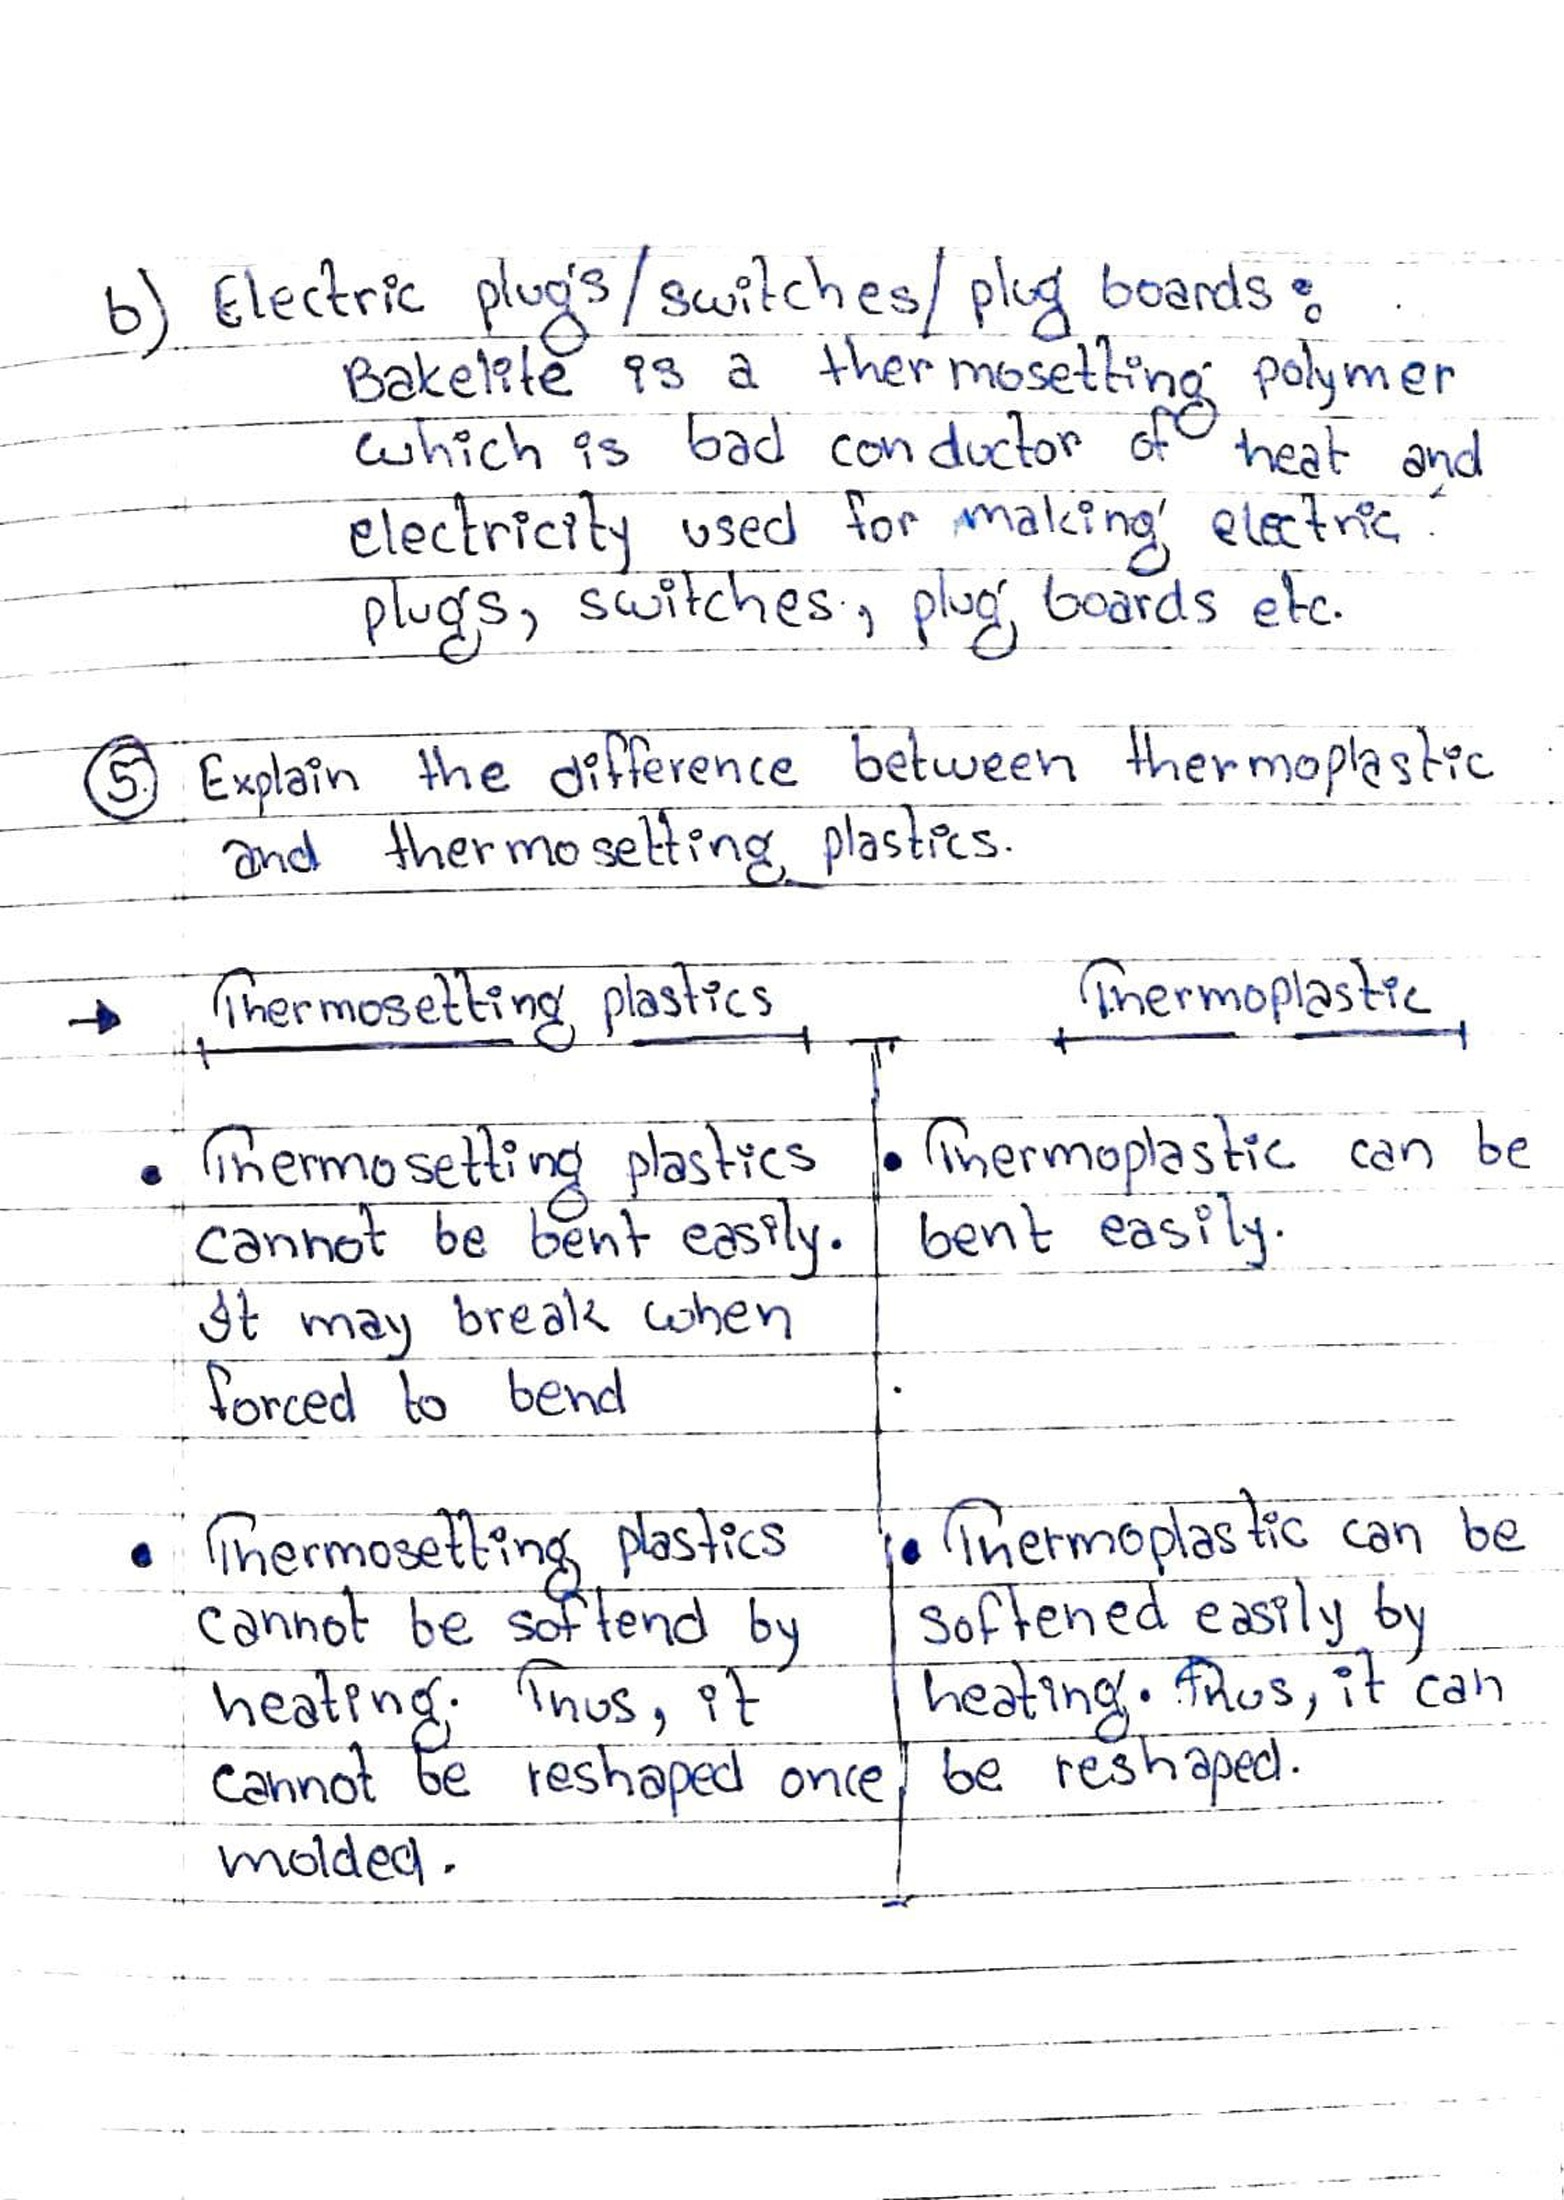 b) Electric plugs/switches/plug boards:
Bakelite is a thermosetting polymer
which is bad conductor of heat and
electricity used for making electric
plugs, switches, plug boards etc.
5. Explain the difference between thermoplastic
and thermosetting plastics.
→ Thermosetting plastics
• Thermosetting plastics
cannot be bent easily.
It may break when
forced to bend
• Thermosetting plastics
cannot be softend by
heating. Thus, it
cannot be reshaped once
molded.
Thermoplastic
• Thermoplastic can be
bent easily.
• Thermoplastic can be
softened easily by
heating. Thus, it can
be reshaped.